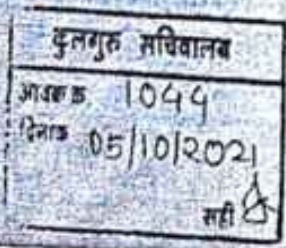 कुलगुरु सचिवालय
आवक क्र. 1044
दिनांक 05/10/2021
सही